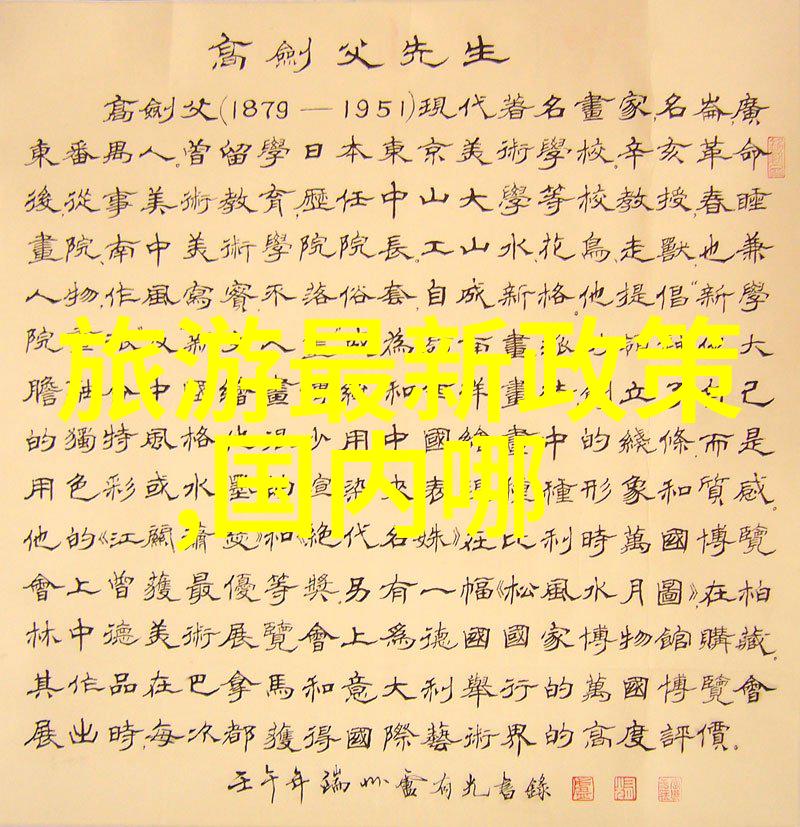 高劍父先生
高劍父(1879—1951)現代著名畫家,名崙,廣
東番禺人。曾留學日本東京美術學校,辛亥革命
後,從事美術教育,歷任中山大學等校教授,春睡
畫院、南中美術學院院長。工山水、花鳥、走獸,也兼
人物,作風寫實,不落俗套,自成新格。他提倡"新學
院
大
膽
己
旅游最新政策
的獨特風格
用
中國繪畫中的綫條,而是
,国内哪
用色彩或水墨的
種形象和質感。
他的《江關蕭瑟》和《絕代名姝》在比利時萬國博覽
會上曾獲最優等獎,另有一幅《松風水月圖》,在柏
林中德美術展覽會上為德國國家博物館購藏。
其作品在巴拿馬和意大利舉行的萬國博覽會
展出時,每次都獲得國際藝術界的高度評價。
壬午年端州盧有光書錄